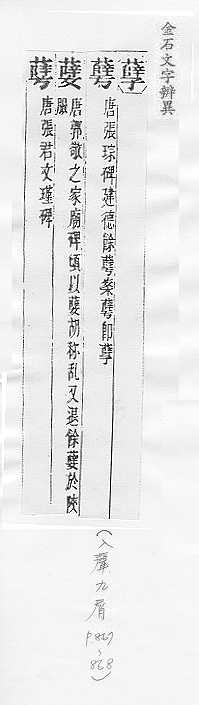 金石文字辨異
孽
㜸唐張琮碑建德餘㜸案㜸即孽
嬖唐郭敬之家廟碑頃以嬖胡称乱又退餘嬖於陝
服
唐張君文瑾碑
(入聲九屑
P.867
~
868)